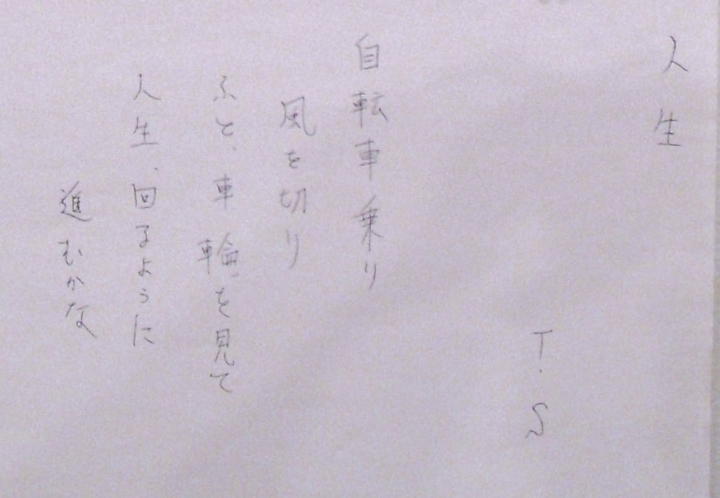 人生
T.S
自転車乗り
風を切り
ふと、車輪を見て
人生、回るように
進むかな